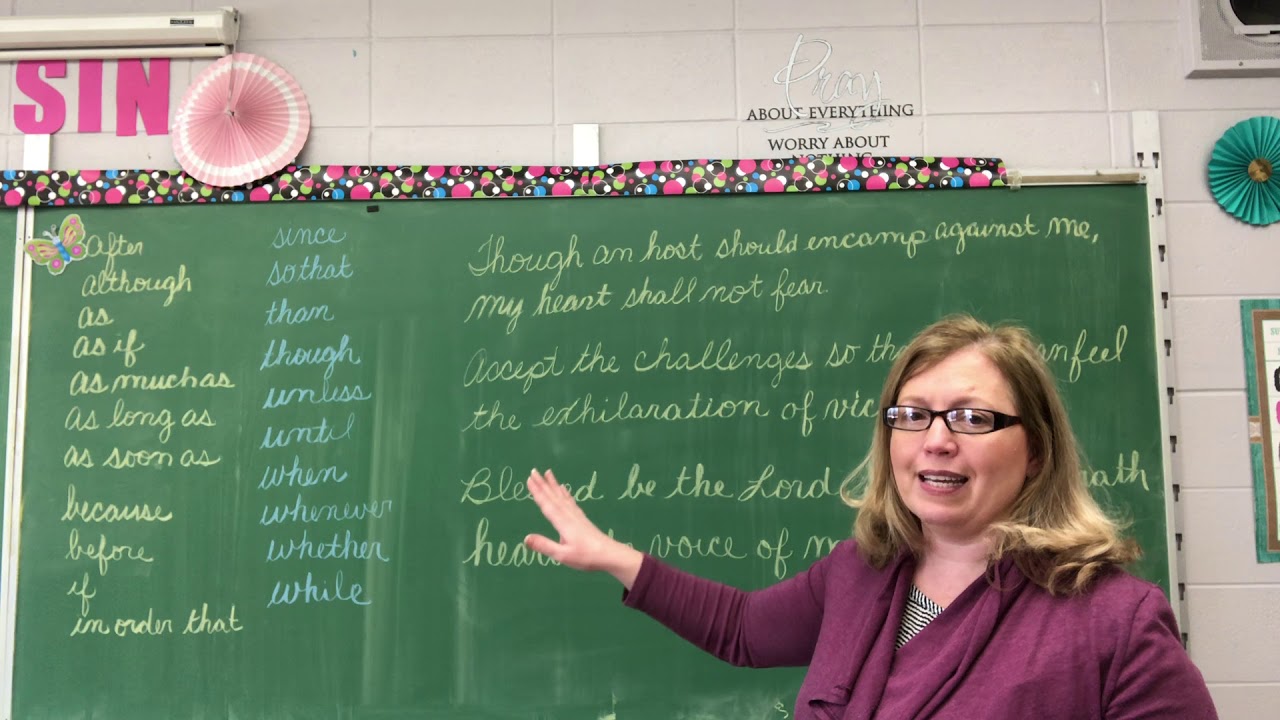 SIN
Pray
ABOUT EVERYTHING
WORRY ABOUT
After
although
as
as if
as much as
as long as
as soon as
because
before
if
in order that
since
so that
than
though
unless
until
when
whenever
whether
while
Though an host should encamp against me,
my heart shall not fear.
Accept the challenges so feel
the exhilaration of
Blessed be the Lord
voice of